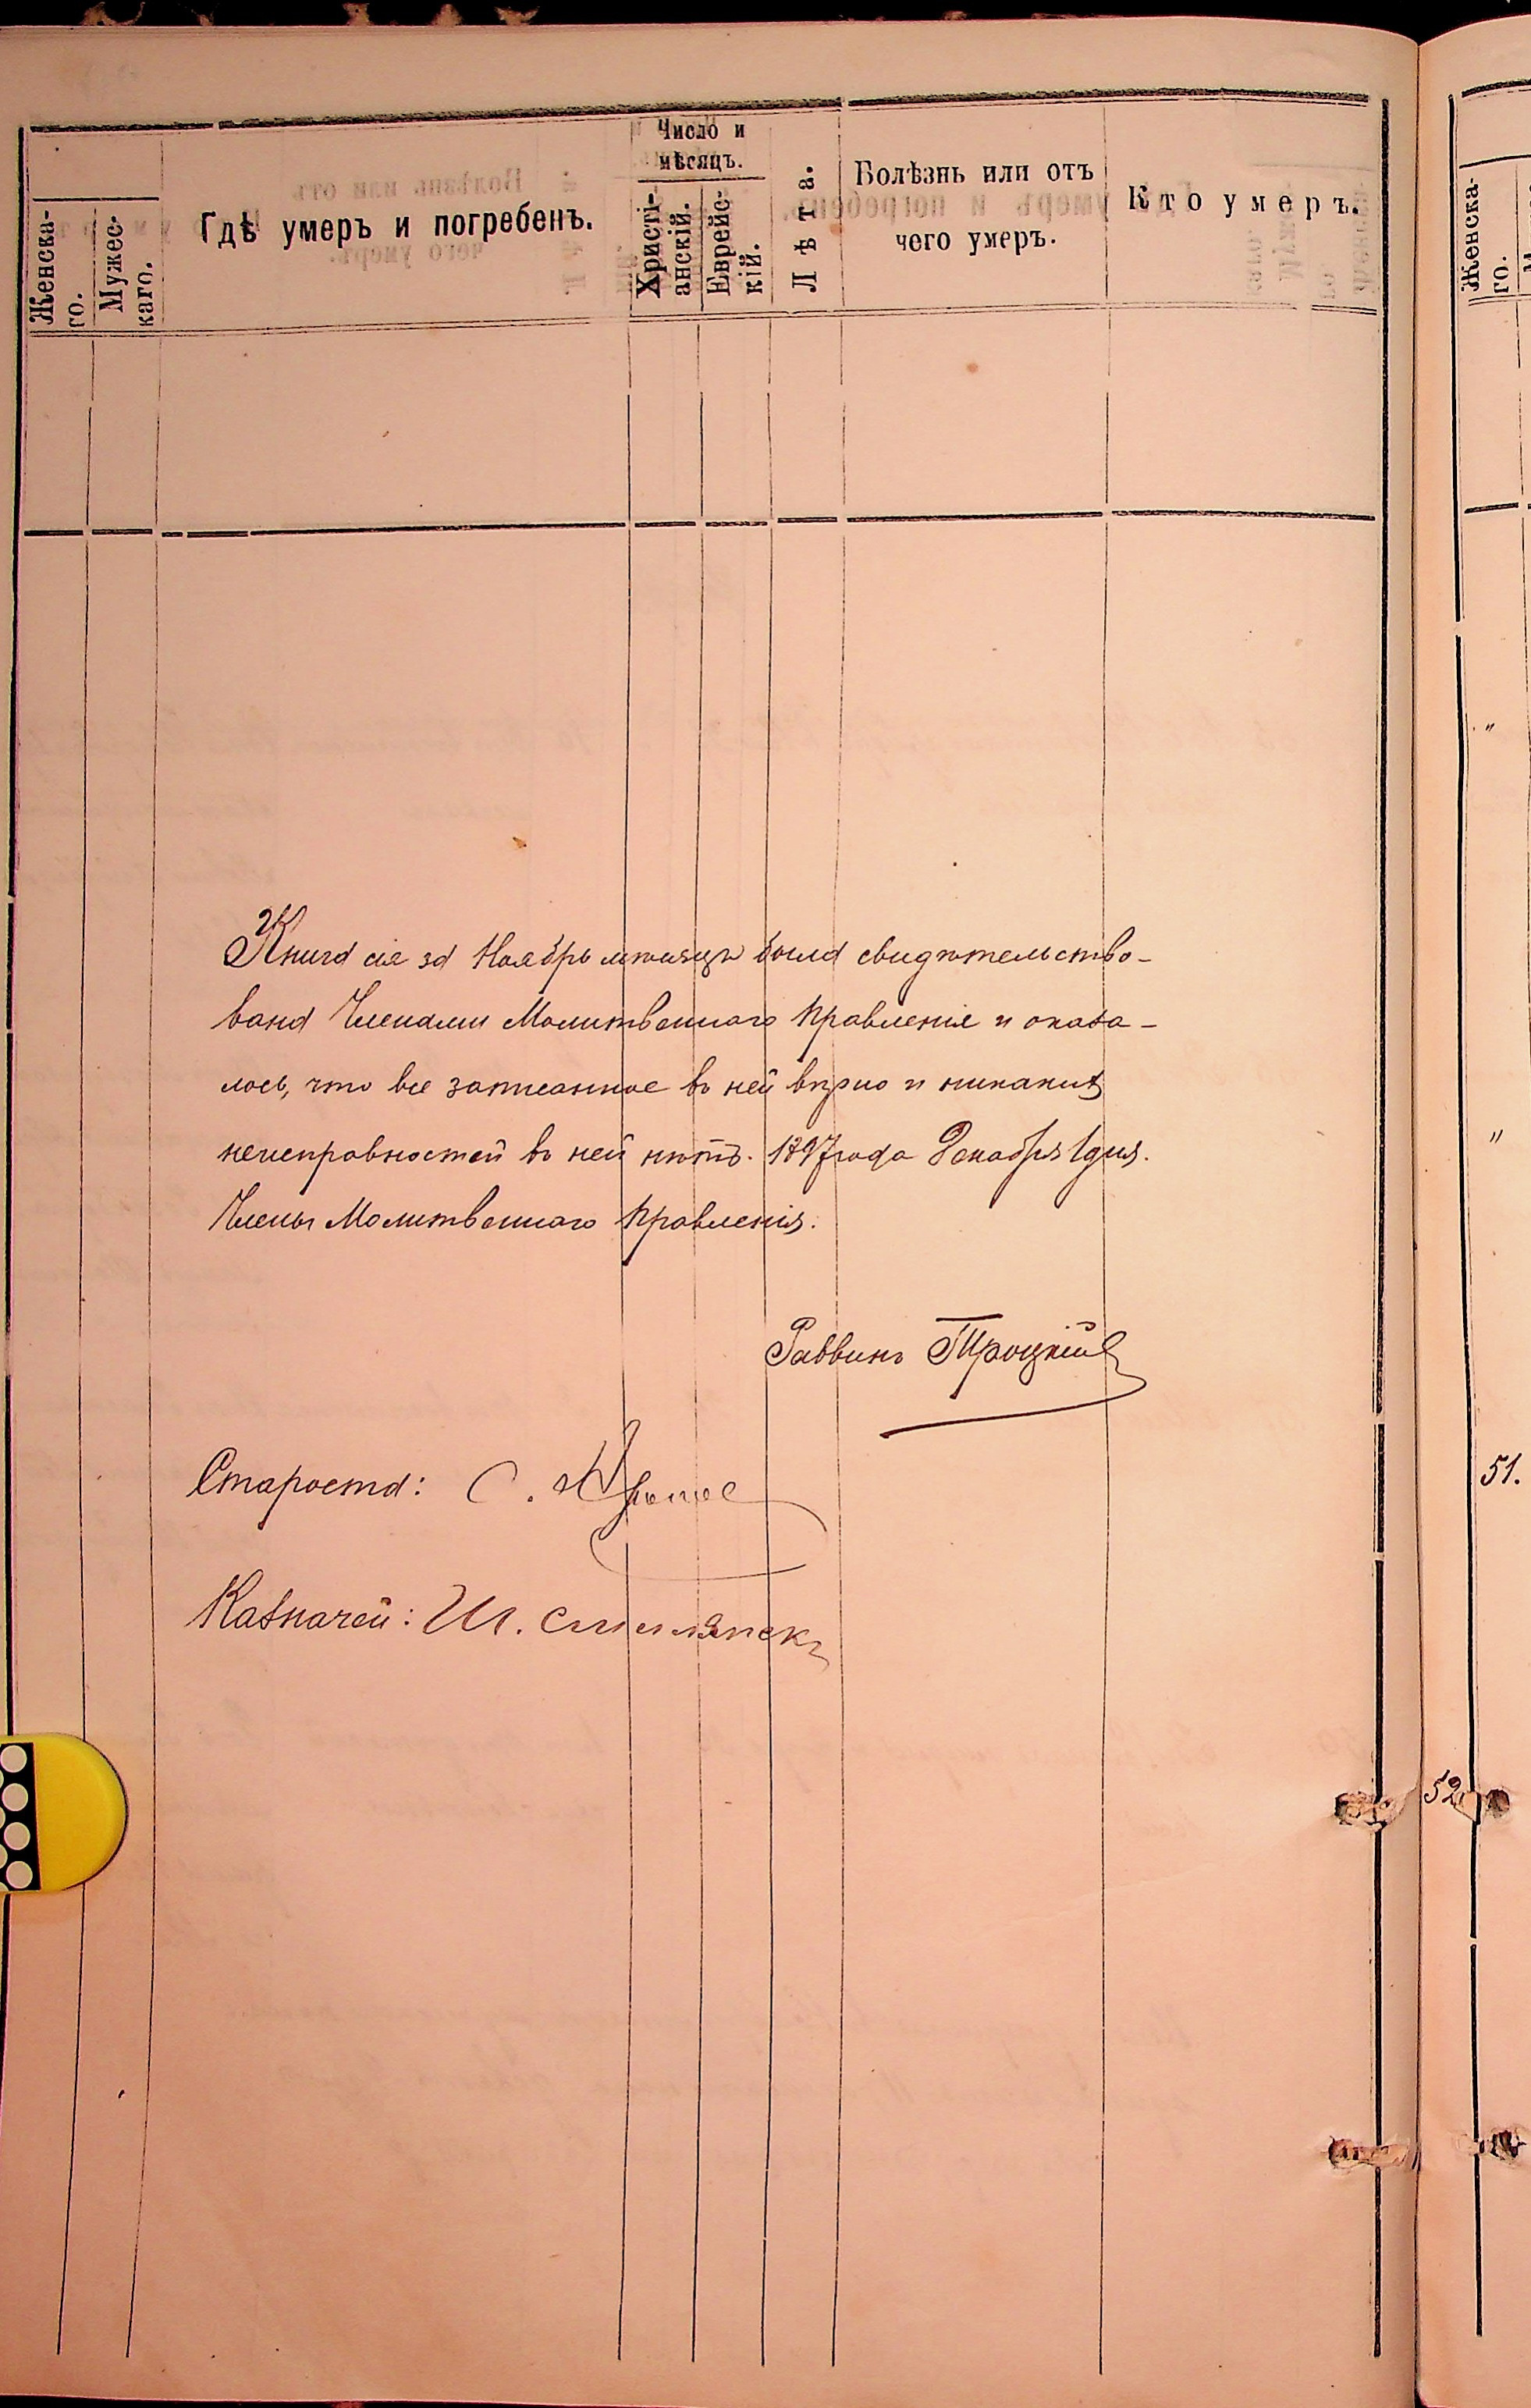 Число и
мѣсяцъ.
Женска-
го.
Мужес-
каго.
Гдѣ умеръ и погребенъ.
Христі-
анскій.
Еврейс-
кій.
Лѣта.
Болѣзнь или отъ
чего умеръ.
Кто умеръ.
Женска-
го.
Книга сія за Ноябрь мѣсяцъ была свидѣтельство-
вана Членами Молитвеннаго Правленія и оказа-
лось, что все записанное въ ней вѣрно и никакихъ
неисправностей въ ней нѣтъ. 1897 года Декабря 1 дня.
Члены Молитвеннаго Правленія.
Раввинъ Троцкій
Староста: С.
Казначей: И.
51.
52